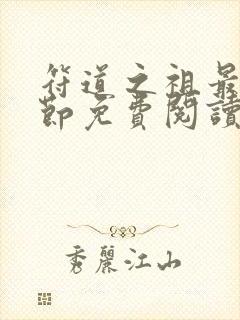 符道之祖最
節免費閱讀
秀麗江山